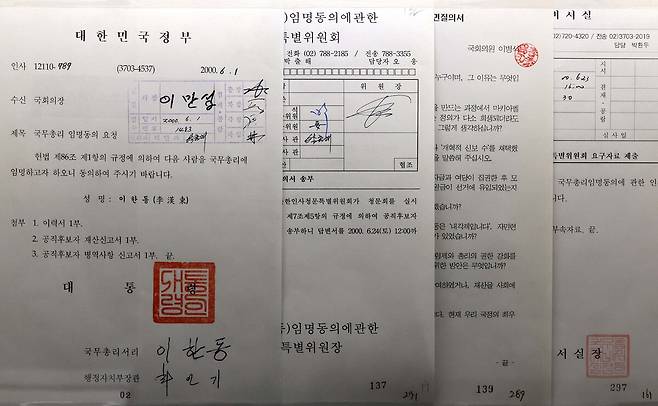 대 한 민 국 정 부
인사 12110-789 (3703-4537) 2000. 6. 1
수신 국회의장
이만섭
2000. 6. 1
1483
제목 국무총리 임명동의 요청
헌법 제86조 제1항의 규정에 의하여 다음 사람을 국무총리에
임명하고자 하오니 동의하여 주시기 바랍니다.
성 명 : 이 한 동 (李 漢 東)
첨부 1. 이력서 1부.
2. 공직후보자 재산신고서 1부.
3. 공직후보자 병역사항 신고서 1부. 끝.
대 통 령
대통령의
국무총리서리 이 한 동
행정자치부장관 최 인 기
02
)임명동의에관한
특별위원회
전화 (02) 788-2185 / 전송 788-3355
박 출 해 담당자 오 웅
위 원 장
협조
서 송부
한인사청문특별위원회가 청문회를 실시
제7조제5항의 규정에 의하여 공직후보자
송부하니 답변서를 2000. 6.24(토) 12:00까
)임명동의에관한
특별위원장
137
271
면질의서
국회의원 이병석
누구이며, 그 이유는 무엇인
을 만드는 과정에서 마키아벨
정의가 다소 희생되더라도
그렇게 생각하십니까?
'개혁적 신보수'를 채택했
을 말씀해 주십시오.
자금과 여당이 집권한 후 모
원이 선거에 유입되었는지
했습니까?
동은 '내각제입니다'. 자민련
가 있었습니까?
림제와 총리의 권한 강화를
위한 방안은 무엇입니까?
여하였거나, 재산을 사회에
다. 현재 우리 국정의 최우
- 끝 -
139
289
비 서 실
02) 720-4320 / 전송 02)3703-2019
담당 박환우
00. 6.23
16:00
30
심 사 일
특별위원회 요구자료 제출
국무총리임명동의에 관한 인
부속자료. 끝.
비 서 실 장
297
161